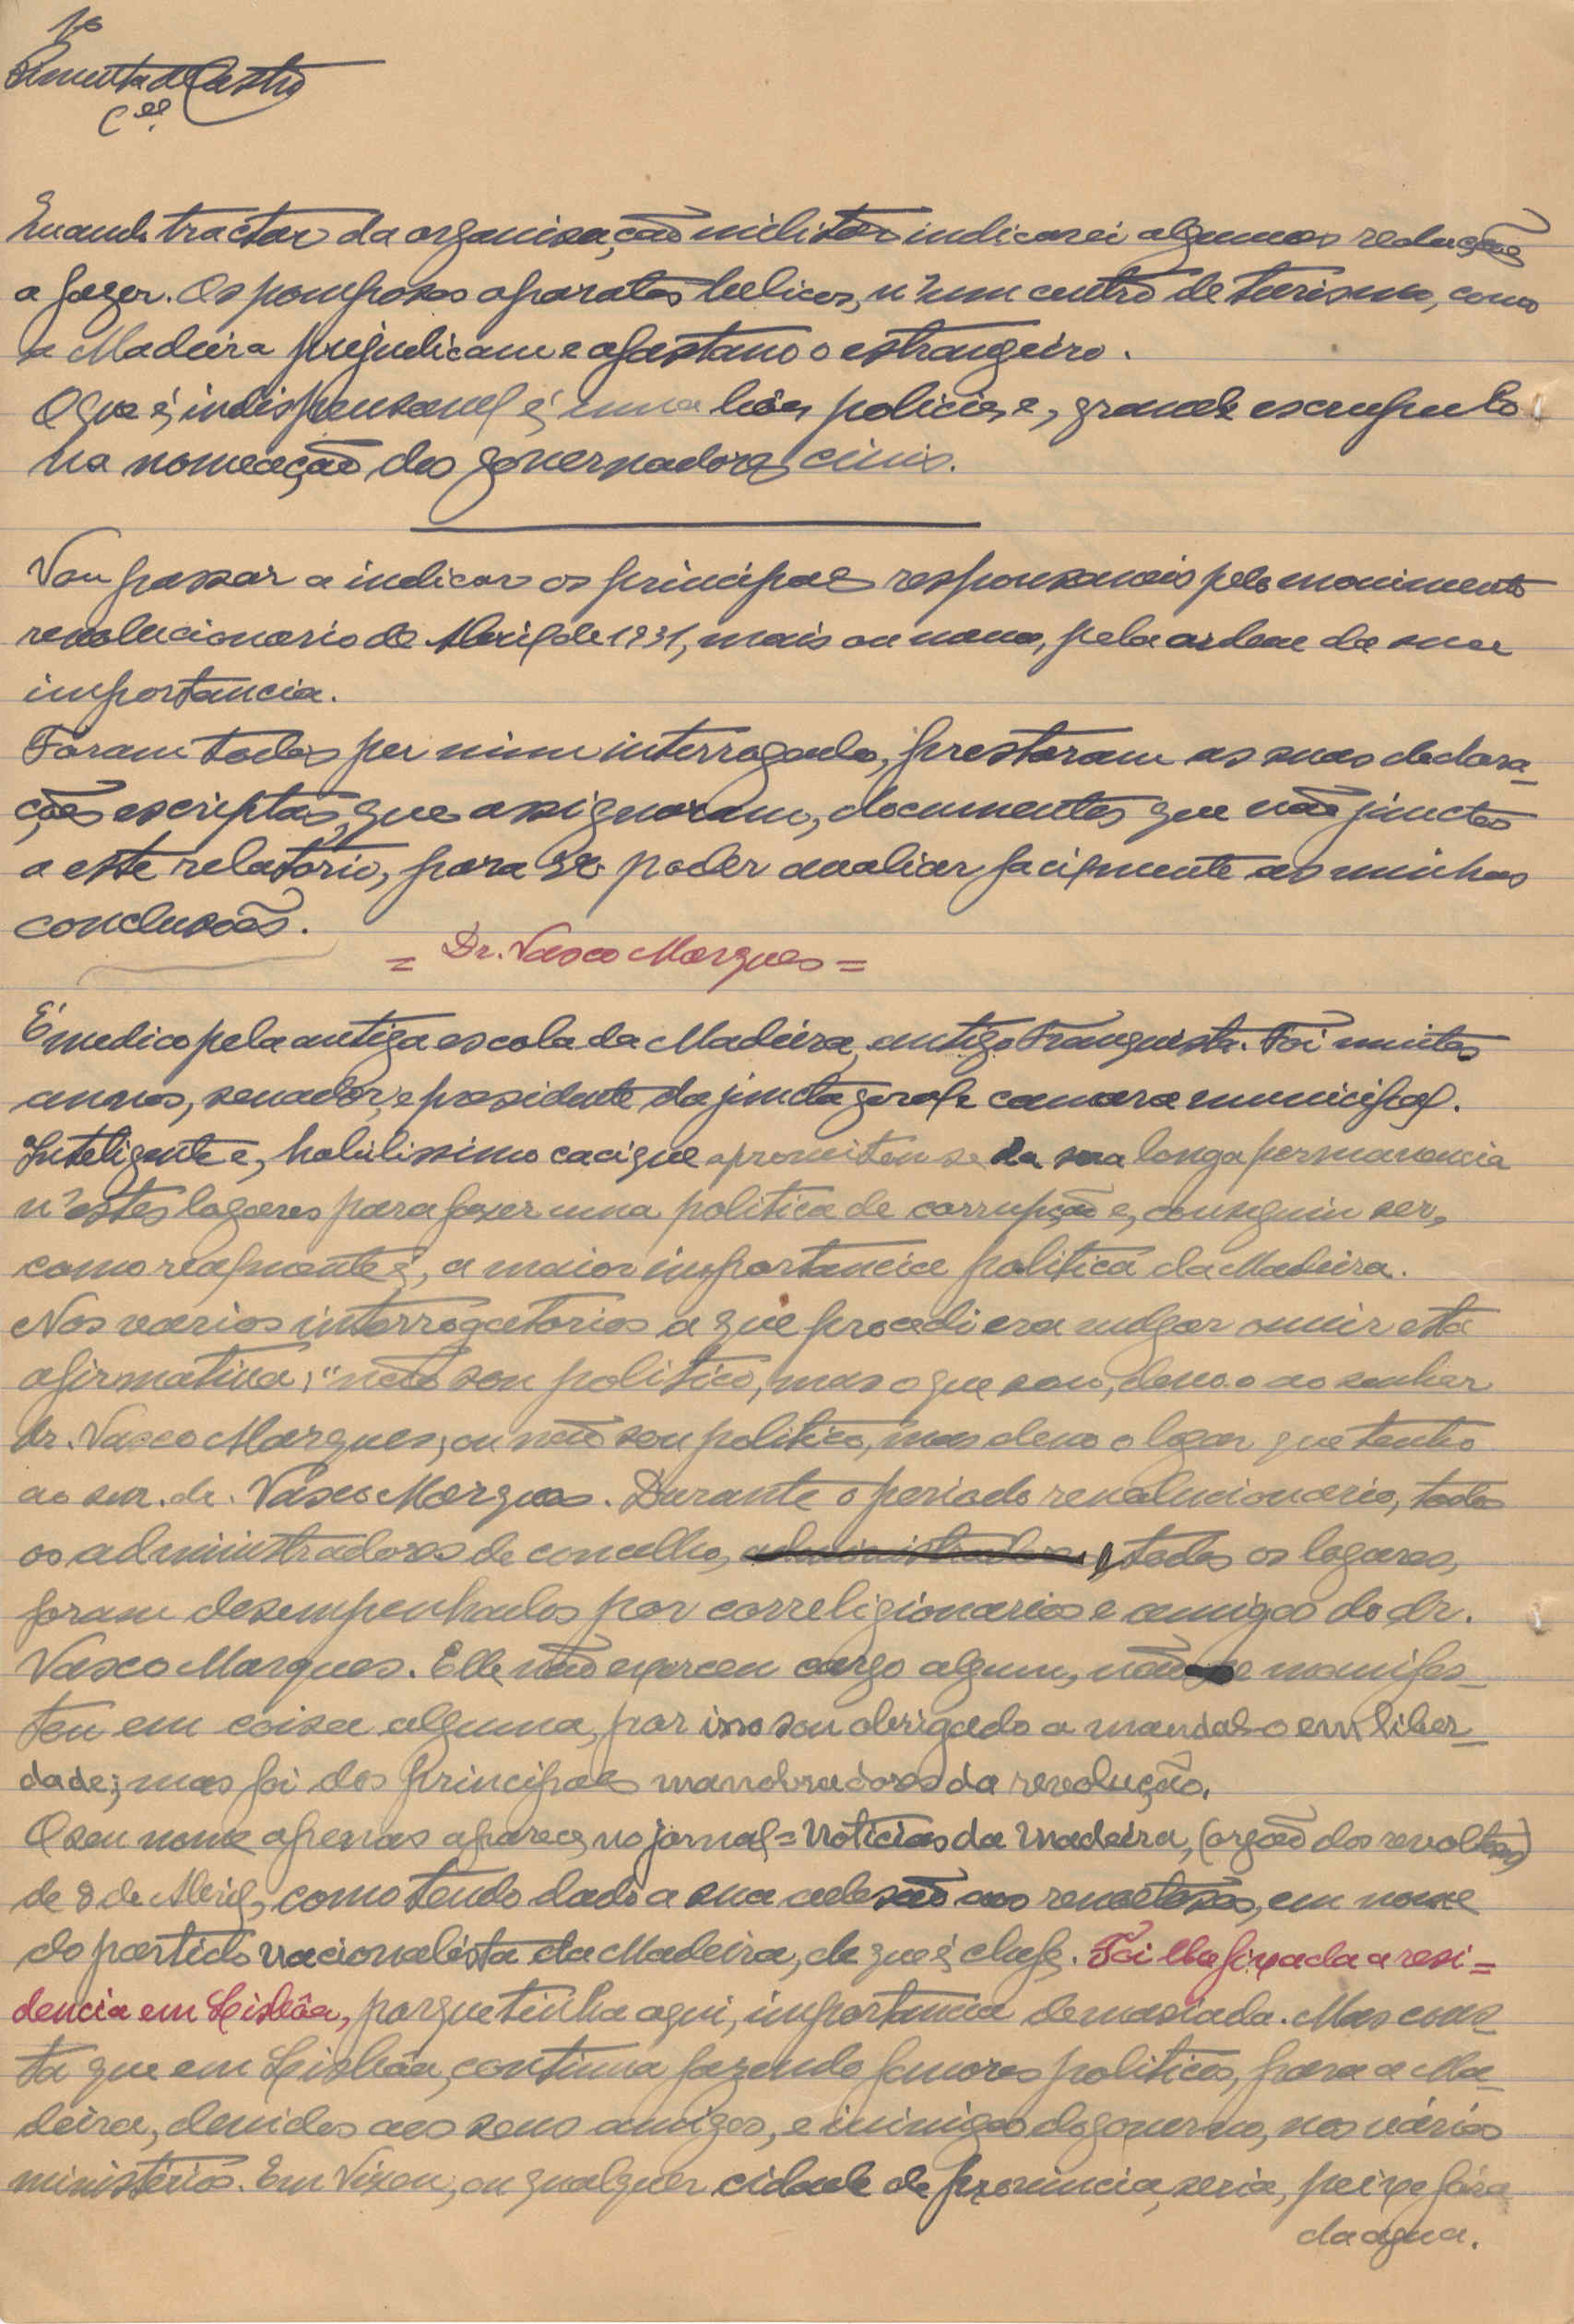 Pimenta de Castro
Cel.
Quando tractar da organisação militar indicarei algumas reduções
a fazer. Os pomposos aparatos belicos, n'um centro de turismo, como
a Madeira prejudicam e afastam o estrangeiro.
O que é indispensavel é uma bôa policia e, grande escrupulo
na nomeação dos governadores civis.
Vou passar a indicar os principaes responsaveis pelo movimento
revolucionario de Abril de 1931, mais ou menos, pela ordem da sua
importancia.
Foram todos por mim interrogados, prestaram as suas declara-
ções escriptas, que assignaram, documentos que vão junctos
a este relatorio, para se poder avaliar facilmente as minhas
conclusões.
= Dr. Vasco Marques =
É medico pela antiga escola da Madeira, antigo Franquista. Foi muitos
annos, senador, e presidente da juncta geral e camara municipal.
Inteligente e, habilissimo cacique aproveitou-se da sua longa permanencia
n'estes logares para fazer uma politica de corrupção e, conseguiu ser,
como realmente é, a maior importancia politica da Madeira.
Nos varios interrogatorios a que procedi era vulgar ouvir esta
afirmativa; "não sou politico, mas o que sou, devo-o ao senhor
dr. Vasco Marques; ou não sou politico, mas devo o logar que tenho
ao snr. dr. Vasco Marques. Durante o periodo revolucionario, todos
os administradores de concelho, administradores e, todos os logares,
foram desempenhados por correligionarios e amigos do dr.
Vasco Marques. Elle não exerceu cargo algum, não se manifes-
tou em coisa alguma, por isso sou obrigado a mandal-o em liber-
dade; mas foi dos principaes manobradores da revolução.
O seu nome apenas aparece no jornal = Noticias da Madeira, (orgão dos revoltosos)
de 8 de Abril, como tendo dado a sua adesão aos revoltosos, em nome
do partido nacionalista da Madeira, de que é chefe. Foi lhe fixada a resi=
dencia em Lisbôa, porque tinha aqui, importancia demasiada. Mas cons-
ta que em Lisbôa, continua fazendo favores politicos, para a Ma-
deira, devidos aos seus amigos, e inimigos do governo, nos vários
ministérios. Em Vizeu, ou qualquer cidade de provincia, seria, peixe fóra
da agua.